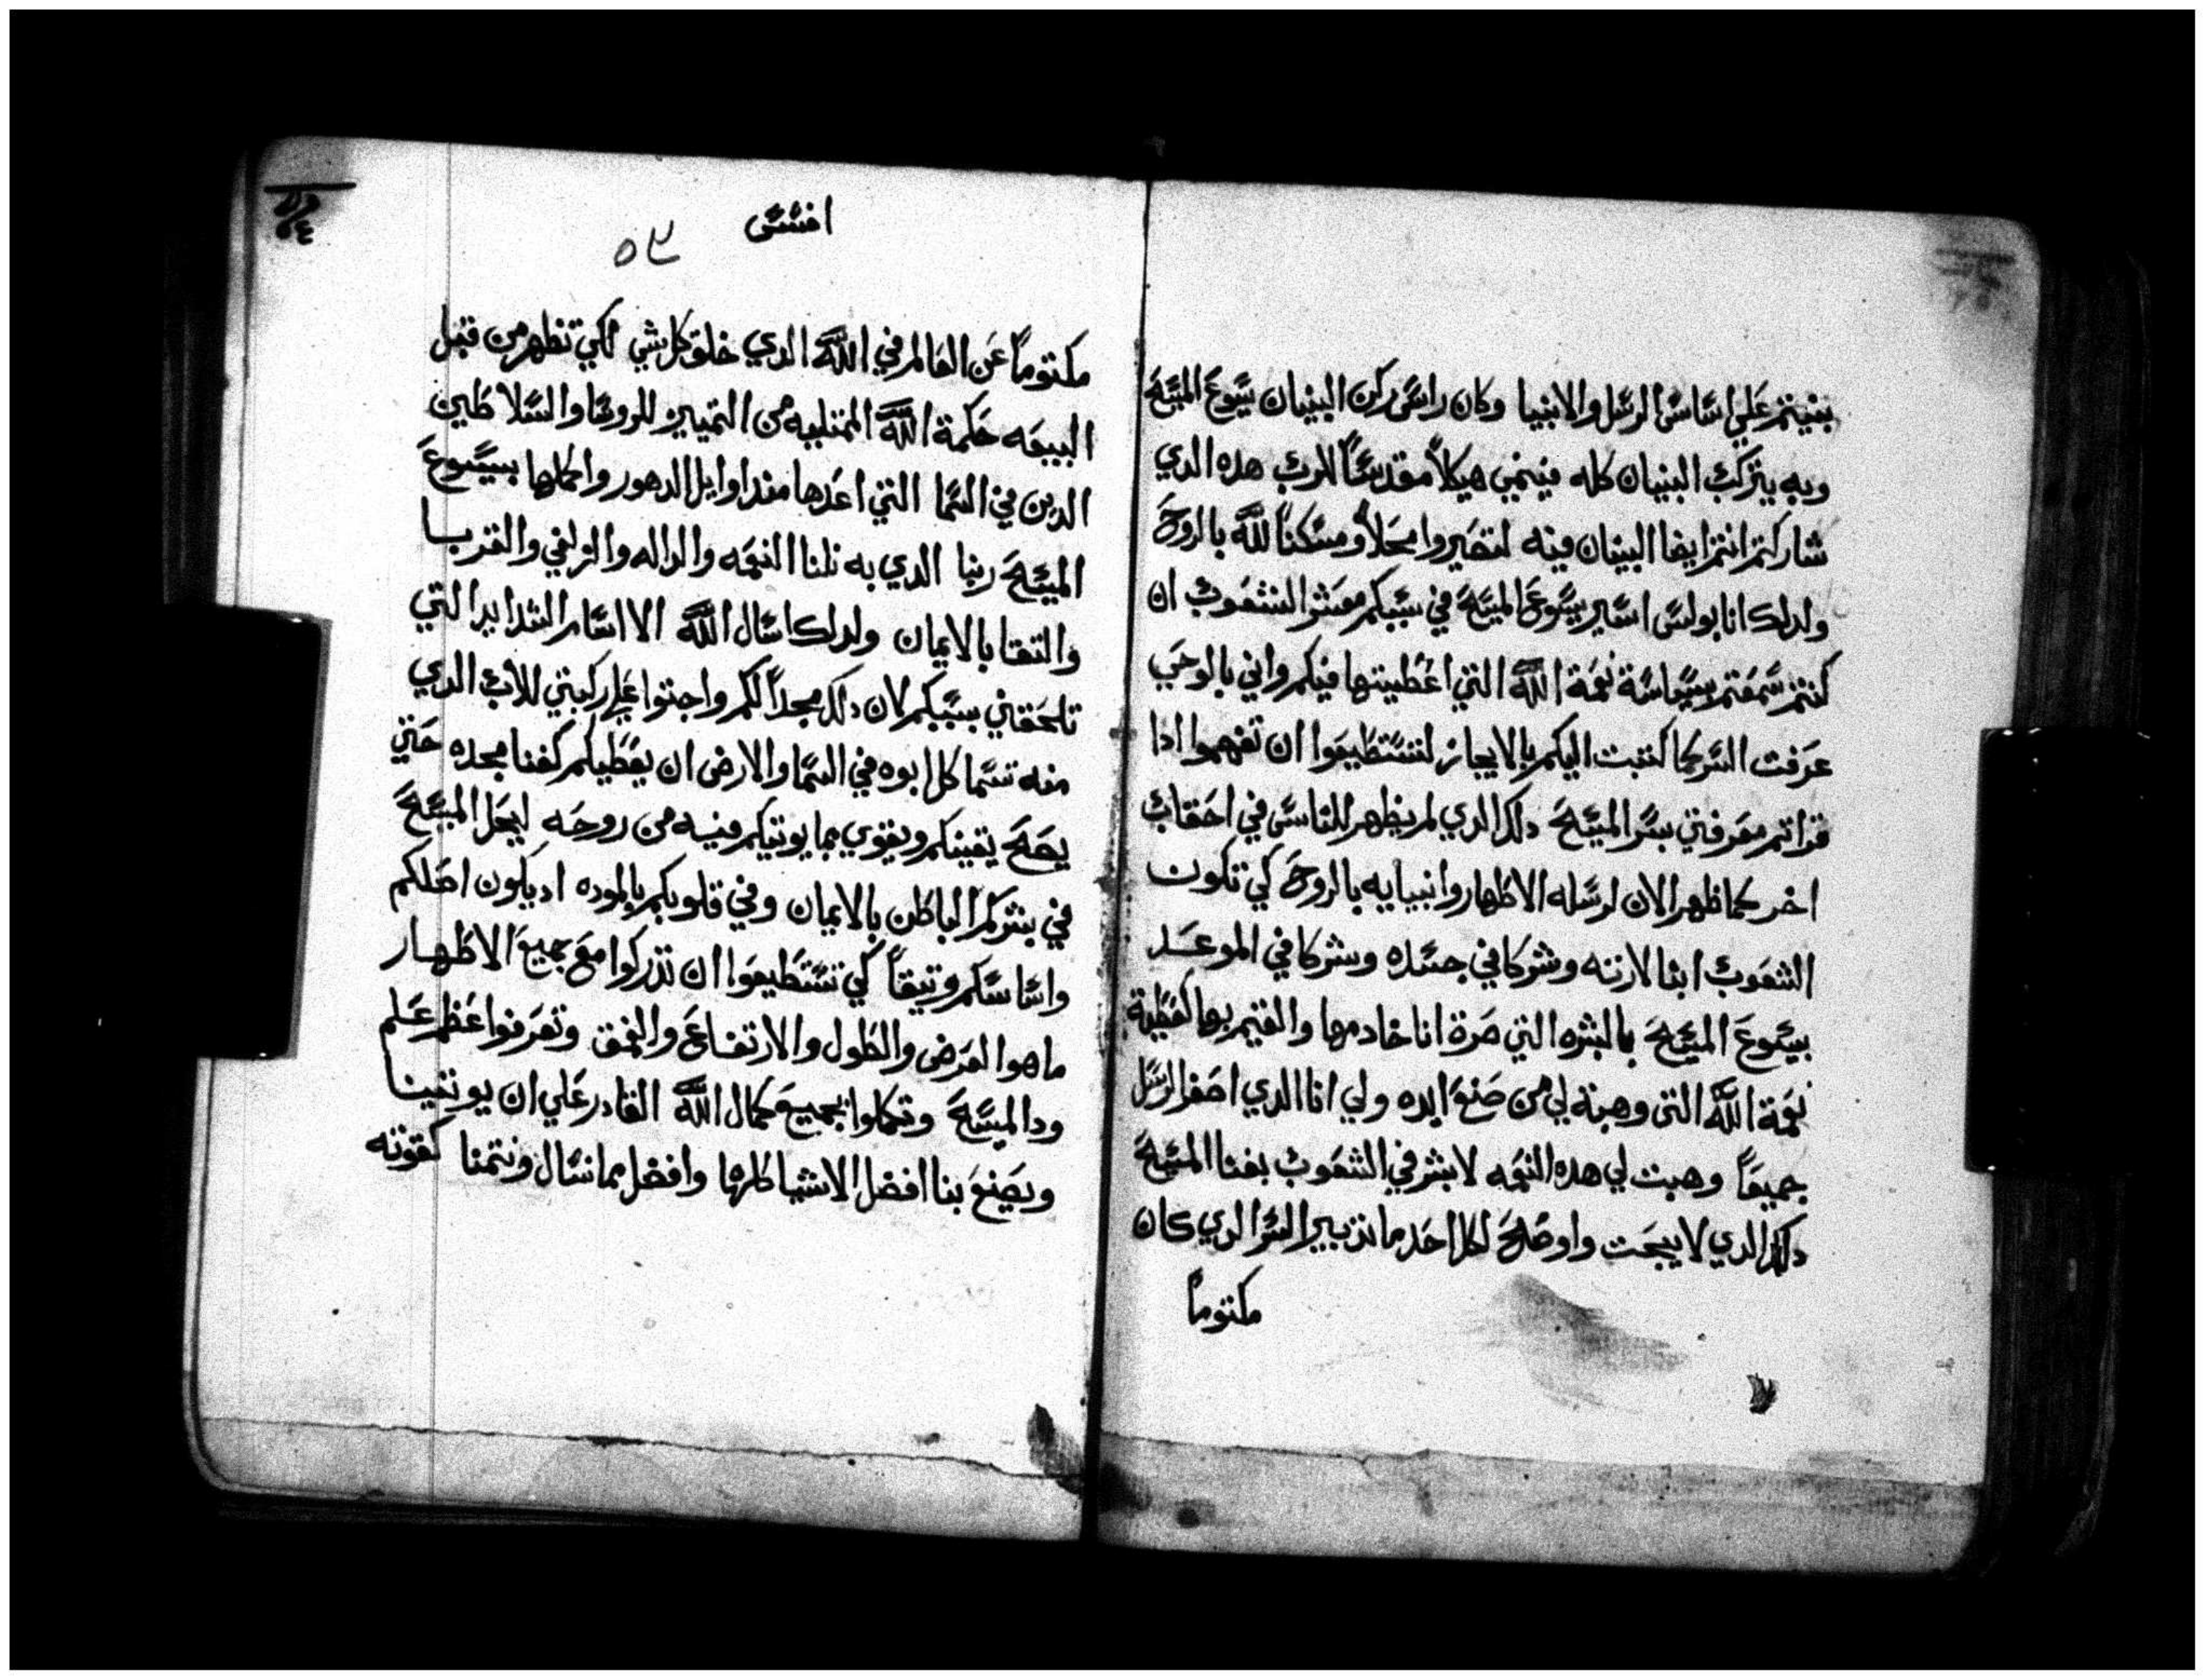 بنيتم علي اساس الرسل والانبيا وكان راس ركن البنيان يسوع المسيح
وبه يتركب البنيان كله فينمي هيكلاً مقدساً للرب هده الدي
شاركتم انتم ايضا البنيان فيه لتصيروا محلاً ومسكناً لله بالروح
ولدلك انا بولس اسير يسوع المسيح في سببكم معشر الشعوب ان
كنتم سمعتم بسياسة نعمة الله التي اعطيتها فيكم واني بالوحي
عرفت السر كما كتبت اليكم بالايجاز لتستطيعوا ان تفهموا ادا
قراتم معرفتي بسر المسيح دلك الدي لم يظهر للناس في احقاب
اخر كما ظهر الان لرسله الاطهار وانبيايه بالروح كي تكون
الشعوب ابنا لارثه وشركا في جسده وشركا في الموعد
بيسوع المسيح بالبشره التي صرة انا خادمها والقيم بها كعطية
نعمة الله التي وهبة لي من صنع ايده ولي انا الدي اصغر الرسل
جميعاً وهبت لي هده النعمه لابشر في الشعوب بغنا المسيح
دلك الدي لا يبحت واوضح لكل احد ما تدبير السر الدي كان
مكتوماً
افسس
٥٣
مكتوماً عن العالم في الله الدي خلق كل شي لكي تظهر من قبل
البيعه حكمة الله الممتليه من التمييز للروسا والسلاطين
الدين في السما التي اعدها مند اوايل الدهور واكملها بيسوع
المسيح ربنا الدي به نلنا النعمه والداله والزلفي والقربا
والتقا بالايمان ولدلك اسال الله الا اسام الشدايد التي
تلحقني بسببكم لان دلك مجداً لكم واجتوا علي ركبتي للاب الدي
منه تسما كل ابوه في السما والارض ان يعطيكم كغنا مجده حتي
يصح يقينكم ويقوي بما يوتيكم فيه من روحه ليحل المسيح
في بشركم الباطن بالايمان وفي قلوبكم بالموده اد يكون اصلكم
واساسكم وتيقاً كي تستطيعوا ان تدركوا مع جميع الاطهار
ما هوا العرض والطول والارتفاع والعمق وتعرفوا عظم علم
ود المسيح وتكملوا بجميع كمال الله القادر علي ان يوتينا
ويصنع بنا افضل الاشيا كلها وافضل مما نسال ونتمنا كقوته